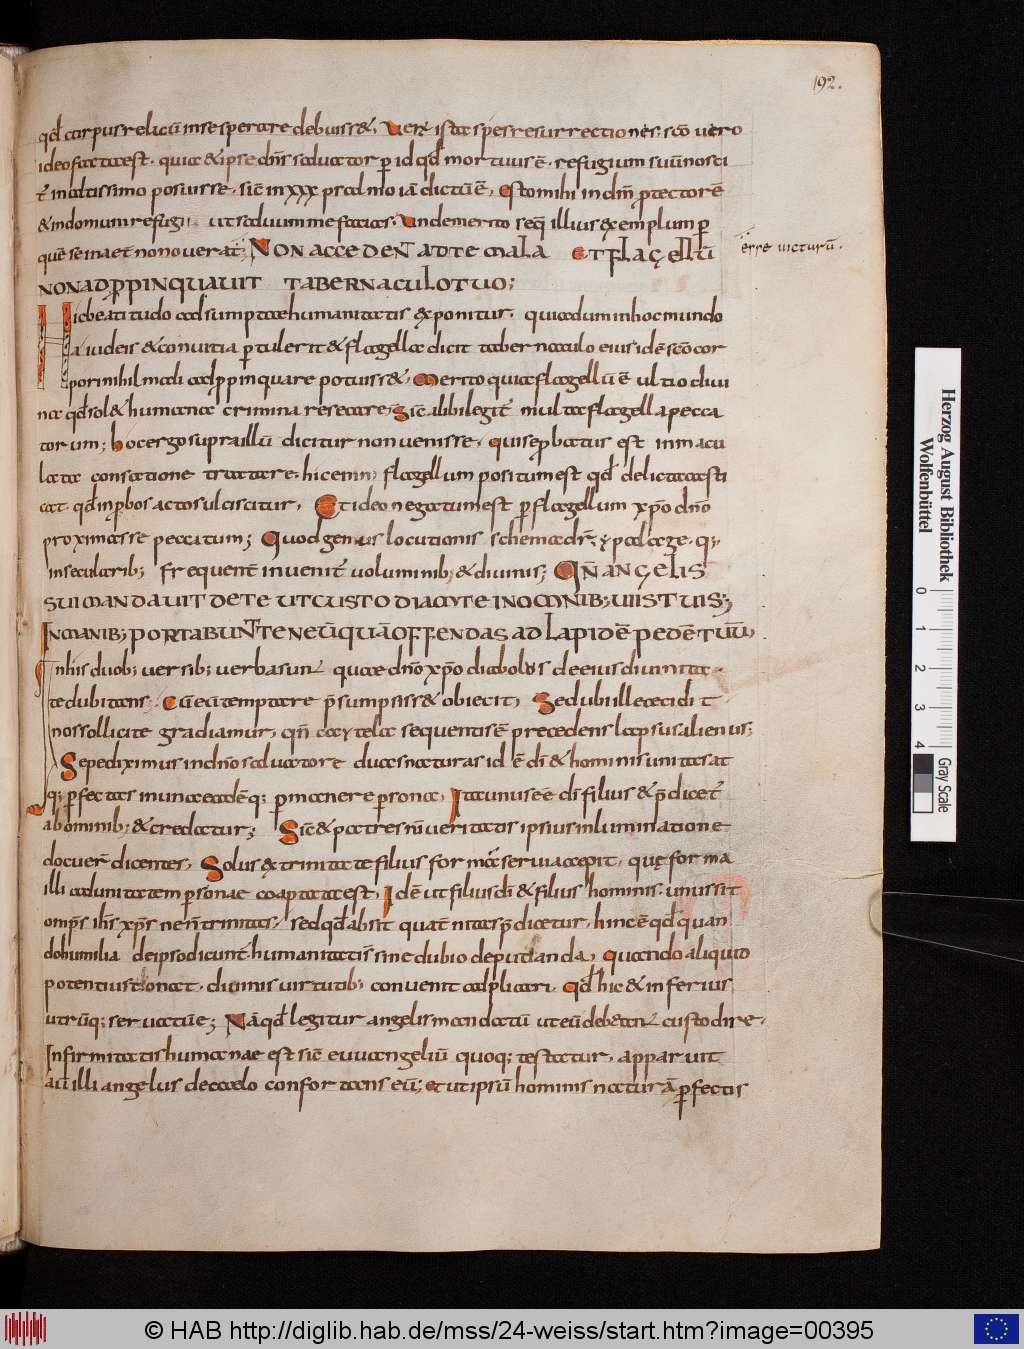 192.
qd̄ corpus relictū in se sperare debuiss&. Uere ista spes resurrectionis. sc̄o uero
ideo facta est. quia & ipse dn̄s saluator p̲ id qd̄ mortuus ē. refugium suū nosci
t̄ in altissimo posuisse. sic̄ in xxx psalmo iā dictū ē. Esto mihi in dm̄ protectorē
& in domum refugii ut saluum me facias. Unde merito seq̄ illius exemplum p̲
quē se maet̄ non nouerat; NON ACCEDENT AD TE MALA ET FLAGELLŪ
ērre uicturū.
NON ADPROPINQUAUIT TABERNACULO TUO;
Hic beatitudo adsumptae humanitatis exponitur. qui cum in hoc mundo
a iudeis & conuitia p̲tulerit & flagella dicit tabernaculo eius idē sc̄o cor
pori nihil mali adpropinquare potuiss&. Merito quia flagellū ē ultio diui
na qd̄ sol& humana crimina resecare. Sic̄ alibi legit̄ multa flagella pecca
torum; hoc ergo supra illū dicitur non uenisse. qui se probatur est inmacu
lata consatione tractare. hic enim flagellum positum est qd̄ delicta casti
cat. qd̄ improbos actos ulciscitur. Et ideo negatum est p̲ flagellum xp̄o dn̄o
proximasse peccatum; Quod genus locutionis schema dr̄. ypallage. q;
in secularib; frequent̄ inuenit̄ uoluminib; & diuinis; QN̄ ANGELIS
SUIS MANDAUIT DE TE UT CUSTODIANT TE IN OMNIB; UIIS TUIS;
IN MANIB; PORTABUNT TE NE UMQUĀ OFFENDAS AD LAPIDĒ PEDĒ TUŪ;
In his duob; uersib; uerba sunt quae dn̄o xp̄o diabolus de eius diuinita
te dubitans. Cū eū temptare p̄sumpsiss& obiecit. Sed ubi ille cecidit
nos sollicite gradiamur. qn̄ cautela sequentis ē precedens lapsus alienus;
Sepe diximus in dn̄o saluatore duas naturas id ē dī & hominis unitas at
q; p̲fectas in una eadēq; p̲manere p̲sona. Ita unus ē dī filius & p̄dicet̄
ab ominib; & credatur; Sic̄ & patres nr̄i ueritatis ipsius inluminatione
docuer̄ dicentes. Solus ex trinitate filius formā serui accepit. quę forma
illi ad unitatem p̲sonae coaptata est. Idē ut filius dī & filius hominis. unus sit
omp̄s ih̄s xp̄s ne n̄ trinitas. sed qd̄ absit quat̄nitas p̄dicetur. hinc ē qd̄ quan
do humilia de ipso dicunt̄. humanitatis sine dubio deputanda. Quando aliquid
potentius tonat. diuinis uirtutib; conuenit adplicari. Qd̄ hic & inferius
utrūq; seruatū ē; Nā qd̄ legitur angelis mandatū ut eū debeant custodire.
Infirmitatis humanae est sic̄ euuangeliū quoq; testatur. apparuit
aū illi angelus de caelo confortans eū; et ut ipsū hominis naturā p̲fectis
Herzog August Bibliothek
Wolfenbüttel
0 1 2 3 4
Gray Scale
© HAB http://diglib.hab.de/mss/24-weiss/start.htm?image=00395